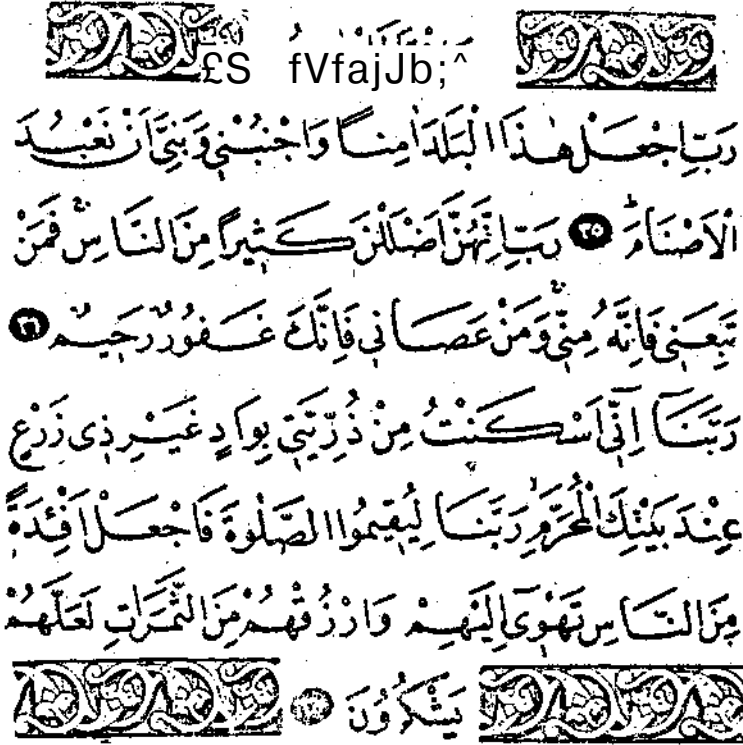 £S fVfajJb;^
رَبِّ اجْعَلْ هٰذَا الْبَلَدَ اٰمِنًا وَّاجْنُبْنِيْ وَبَنِيَّ اَنْ نَّعْبُدَ
الْاَصْنَامَ ؕ ۳۵ رَبِّ اِنَّهُنَّ اَضْلَلْنَ كَثِيْرًا مِّنَ النَّاسِ ۚ فَمَنْ
تَبِعَنِيْ فَاِنَّهٗ مِنِّيْ ۚ وَمَنْ عَصَانِيْ فَاِنَّكَ غَفُوْرٌ رَّحِيْمٌ ۳۶
رَبَّنَآ اِنِّيْٓ اَسْكَنْتُ مِنْ ذُرِّيَّتِيْ بِوَادٍ غَيْرِ ذِيْ زَرْعٍ
عِنْدَ بَيْتِكَ الْمُحَرَّمِ ۙ رَبَّنَا لِيُقِيْمُوا الصَّلٰوةَ فَاجْعَلْ اَفْئِدَةً
مِّنَ النَّاسِ تَهْوِيْٓ اِلَيْهِمْ وَارْزُقْهُمْ مِّنَ الثَّمَرٰتِ لَعَلَّهُمْ
يَشْكُرُوْنَ